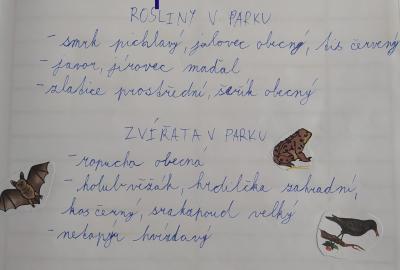 ROSLINY V PARKU
- smrk pichlavý, jalovec obecný, tis červený
- javor, jírovec maďal
- zlatice prostřední, šeřík obecný
ZVÍŘATA V PARKU
- ropucha obecná
- holub věžák, hrdlička zahradní,
kos černý, strakapoud velký
- netopýr hvízdavý